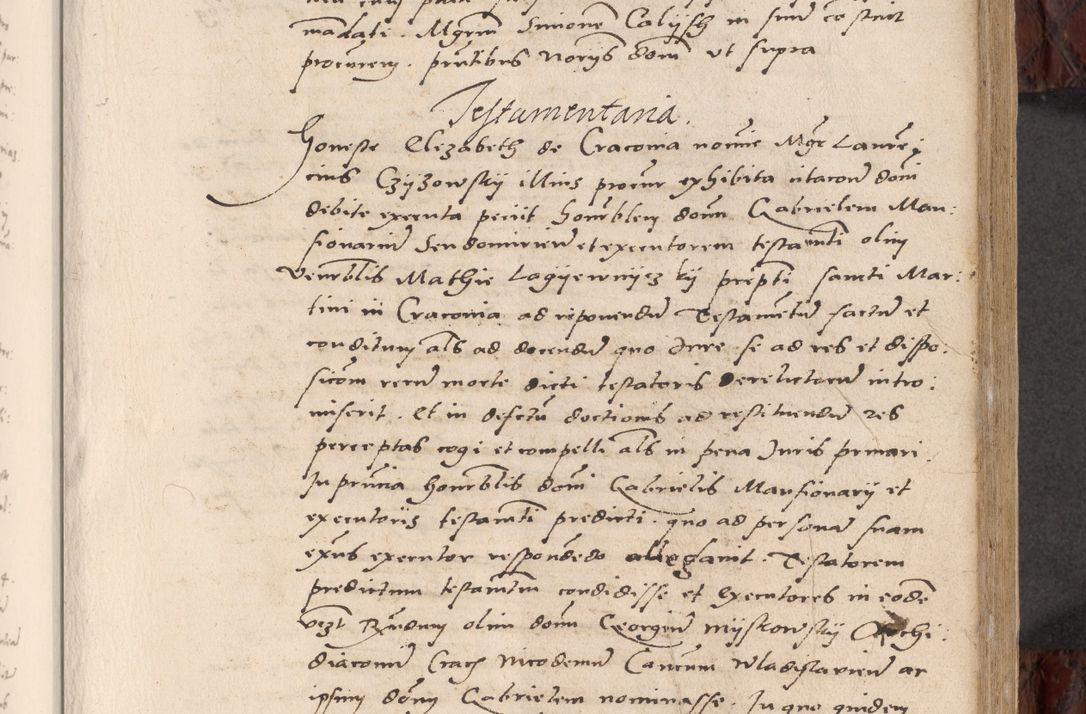 mandati. Mgrm Simone Calijsch in suu costuit
procurem. pntibus Norijs dom ut supra
Testamentaria.
Honeste Elizabeth de Craconia noie Mgr Lauren
cius Czyzowsky illius procur exhibita citacone domi
debite executa petiit honrblem dnum Gabrielem Man:
sionariu Sendomirien et executorem testamti olim
venrblis Mathie prepti sancti Mar:
tini in Craconia ad reponendu Testametu factu et
conditum als ad docendu quo Jure se ad res et dispo:
sicom reru morte dicti testatoris derelictaru intro:
miserit. Et in defectu doctionis ad restituendu res
perceptas cogi et compelli als in pena Juris pmnari.
In pntia honrblis domi Gabrielis Mansionarij et
executoris testamti predicti. quo ad persona suam
exns executor respondedo allegavit. Testatorem
predictum testamtm condidisse et Executores in eode
vizt Rndum olim dnum Georgiu Myskowsky Archi:
diaconu Crac Nicodemu Cancum Wladislavien ac
ipsum dnum Gabrielem nominasse. In quo quidem